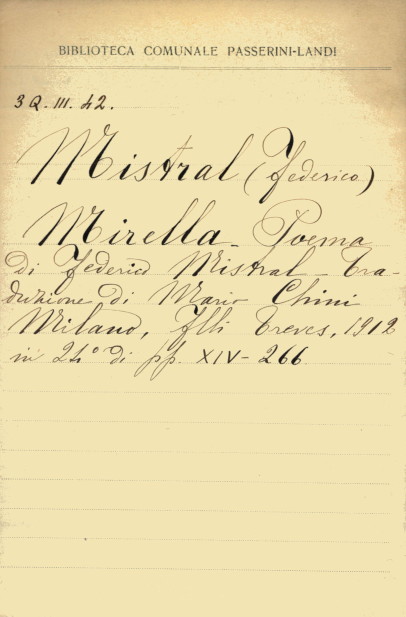 BIBLIOTECA COMUNALE PASSERINI-LANDI
3 Q. III. 42.
Mistral (Federico)
Mirella - Poema
di Federico Mistral - Tra-
duzione di Mario Chini
Milano, Flli Treves, 1912
in 24° di pp. XIV - 266